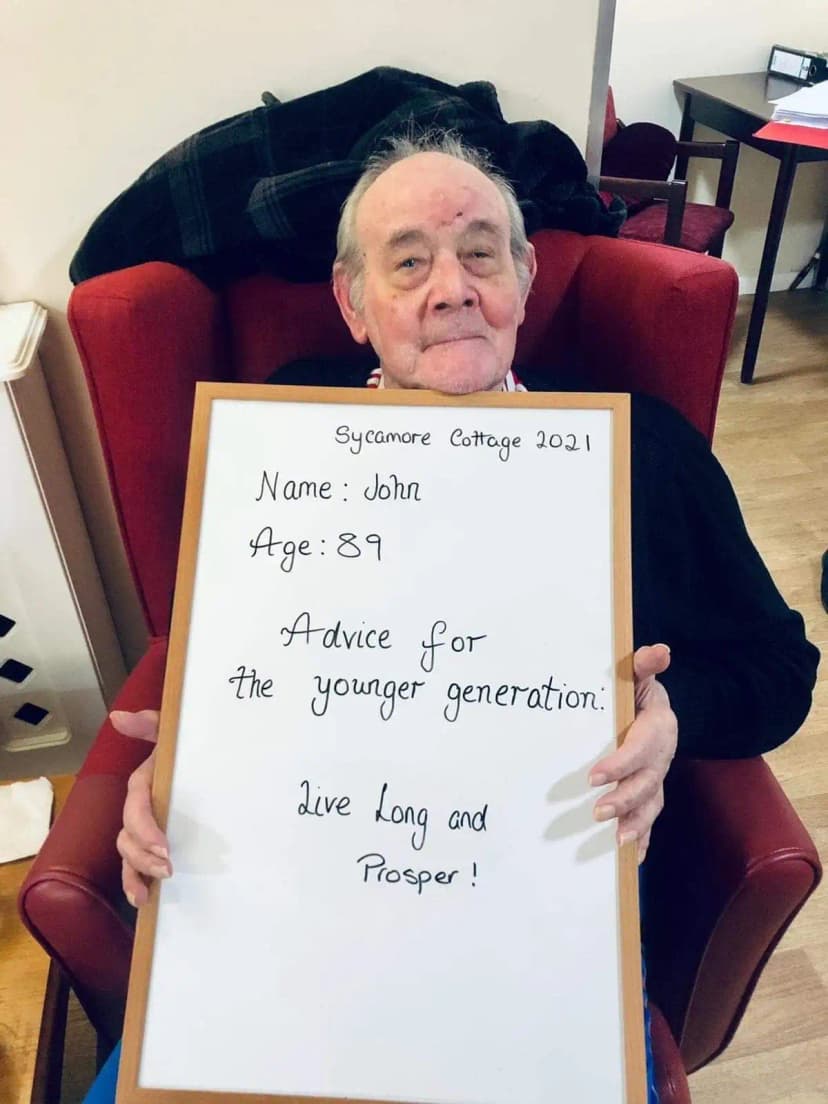 Sycamore Cottage 2021
Name: John
Age: 89
Advice for
the younger generation:
Live Long and
Prosper!